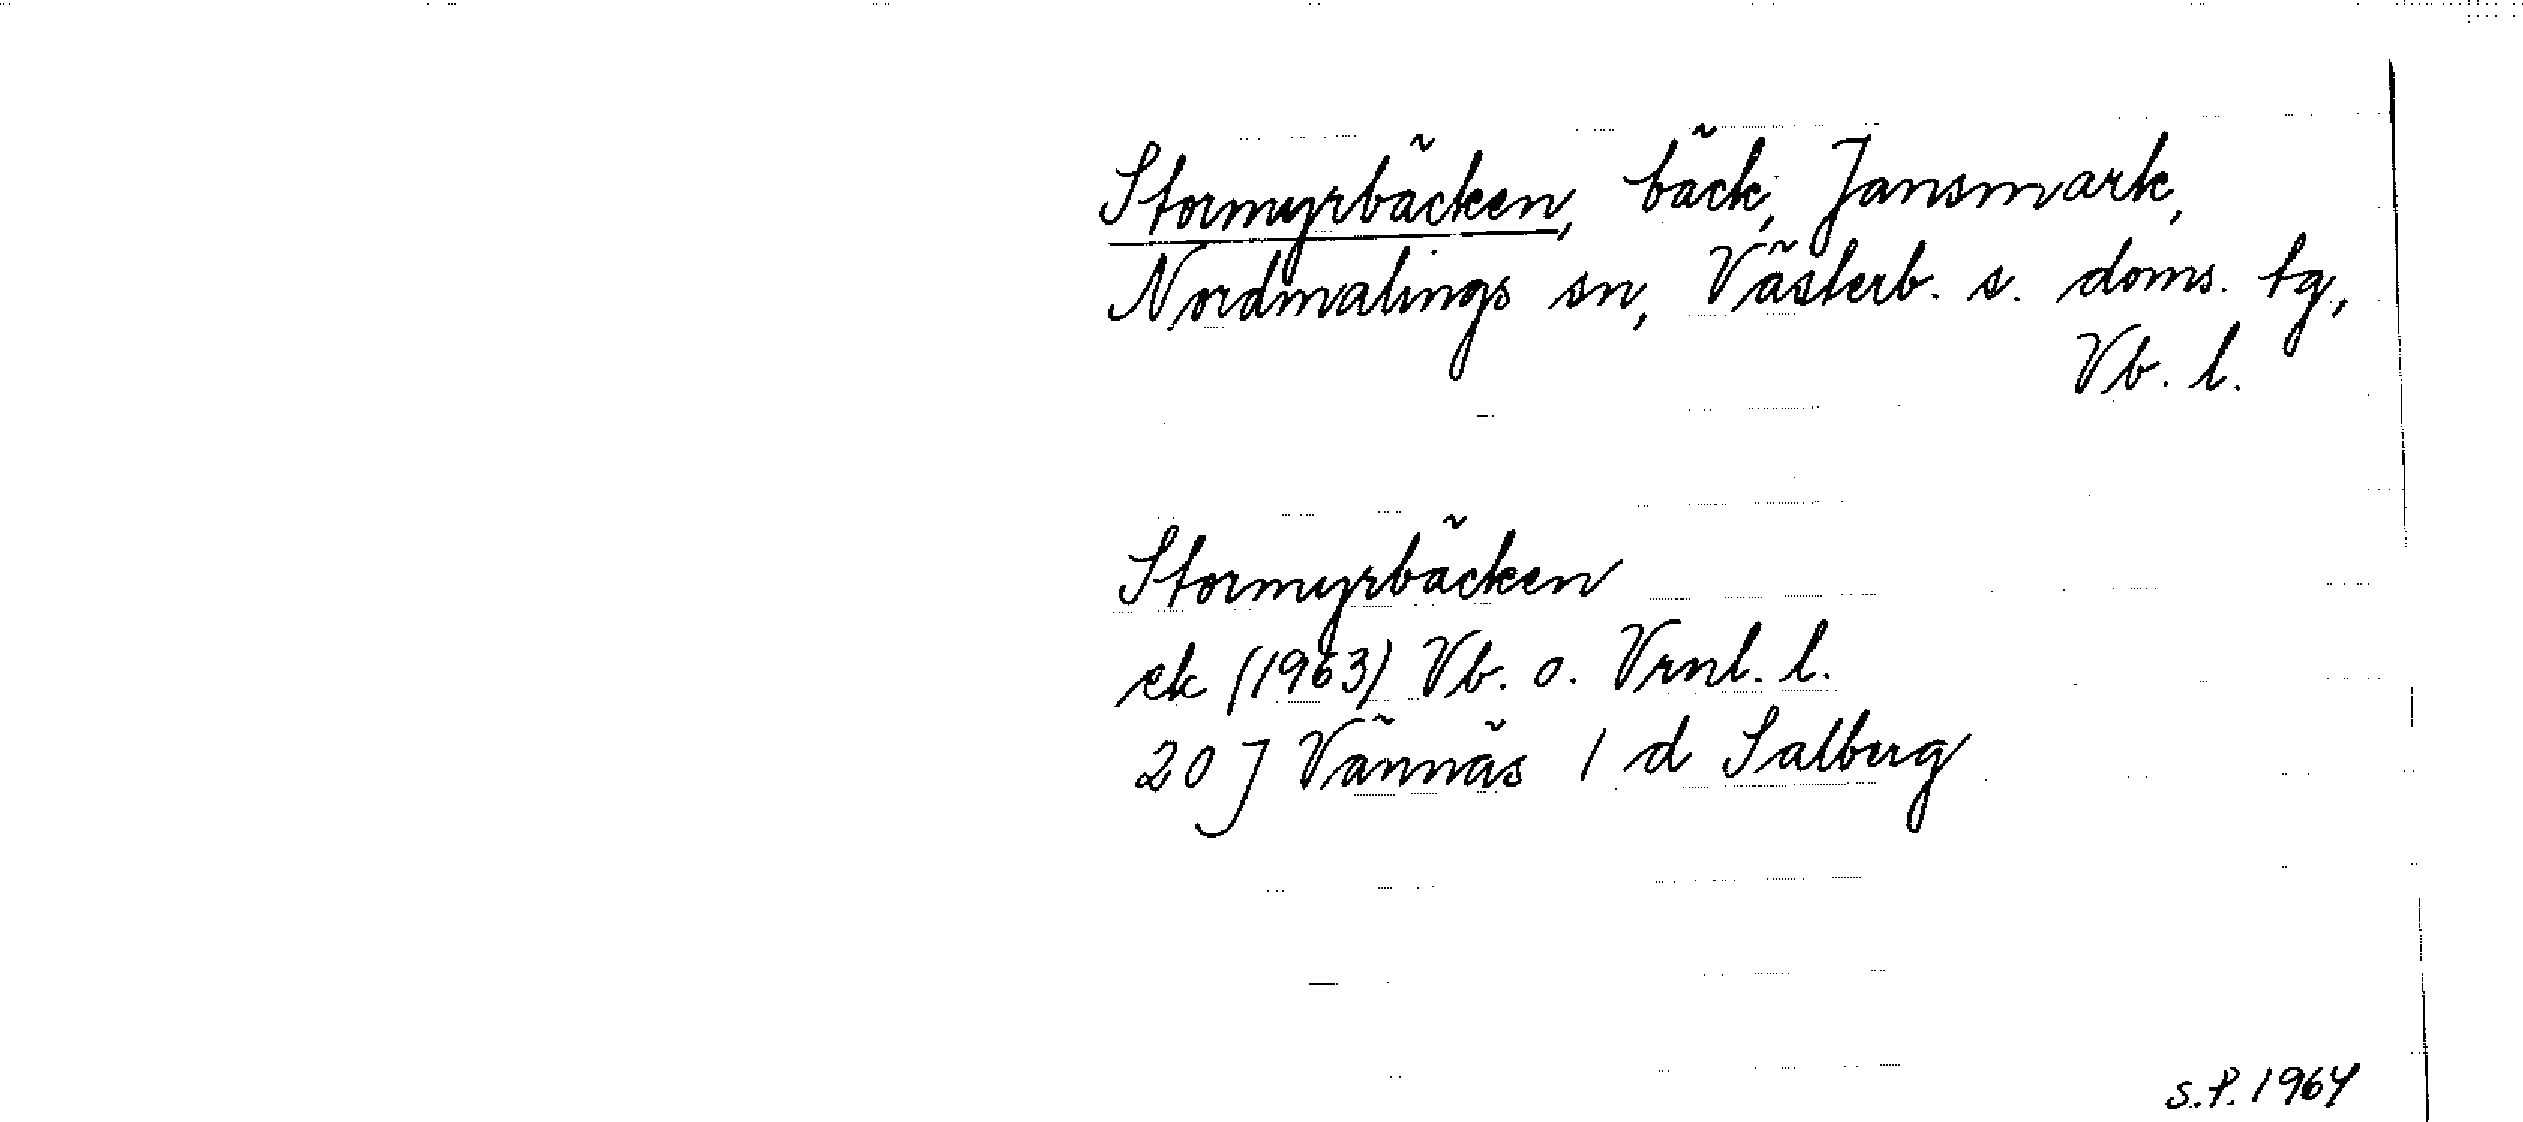 Stormyrbäcken, bäck, Jansmark,
Nordmalings sn, Västerb. s. doms. tg,
Vb. l.
Stormyrbäcken
ek (1963) Vb. o. Vrnl. l.
20 J Vännäs 1 d Salberg
S.P. 1964